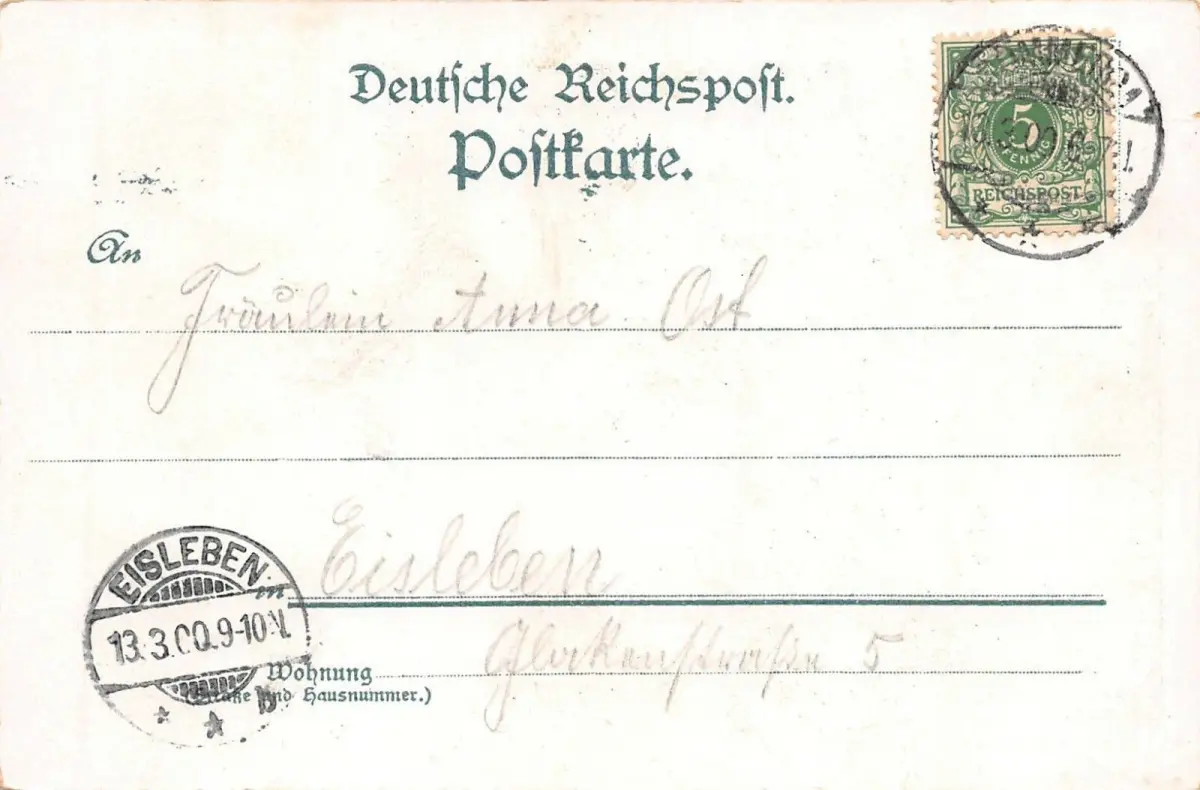 Deutsche Reichspost.
Postkarte.
5
PFENNIG
REICHSPOST
An
Fräulein Anna Ost
Eisleben
in
EISLEBEN
13.3.00.9-10N.
b
Glockenstraße 5
Wohnung
(Straße und Hausnummer.)